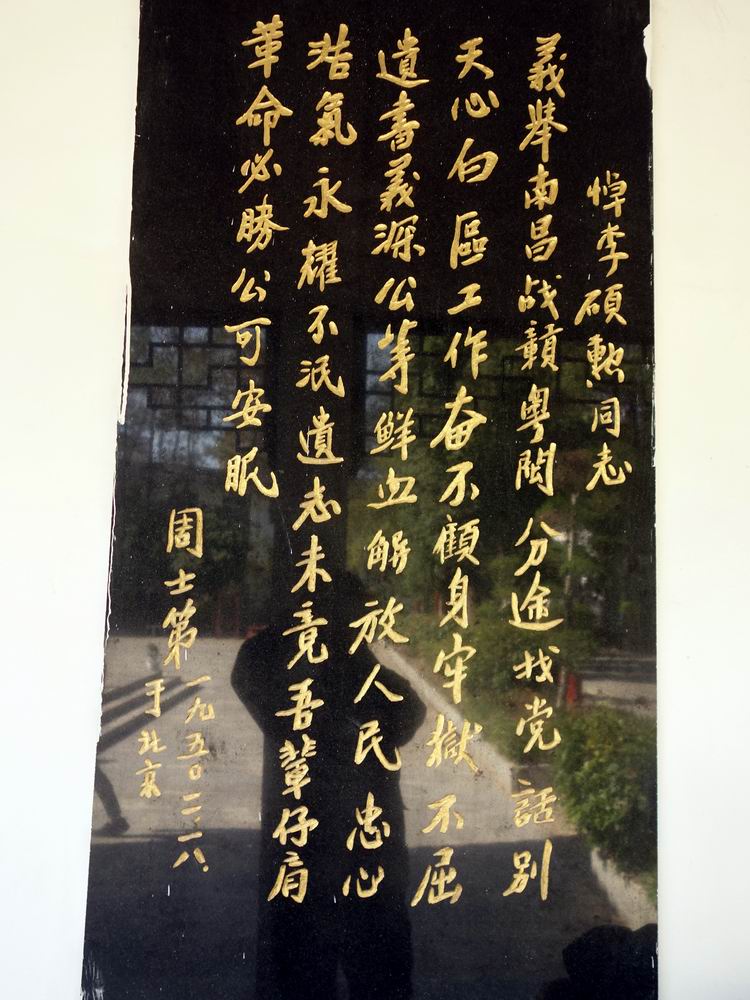 悼李硕勲同志
義舉南昌战贛粤閩分途找党話别
天心白區工作奋不顧身牢獄不屈
遺書義深公等鮮血解放人民忠心
浩氣永耀不泯遺志未竟吾輩仔肩
革命必勝公可安眠
周士第
一九五〇.二.一八.
于北京